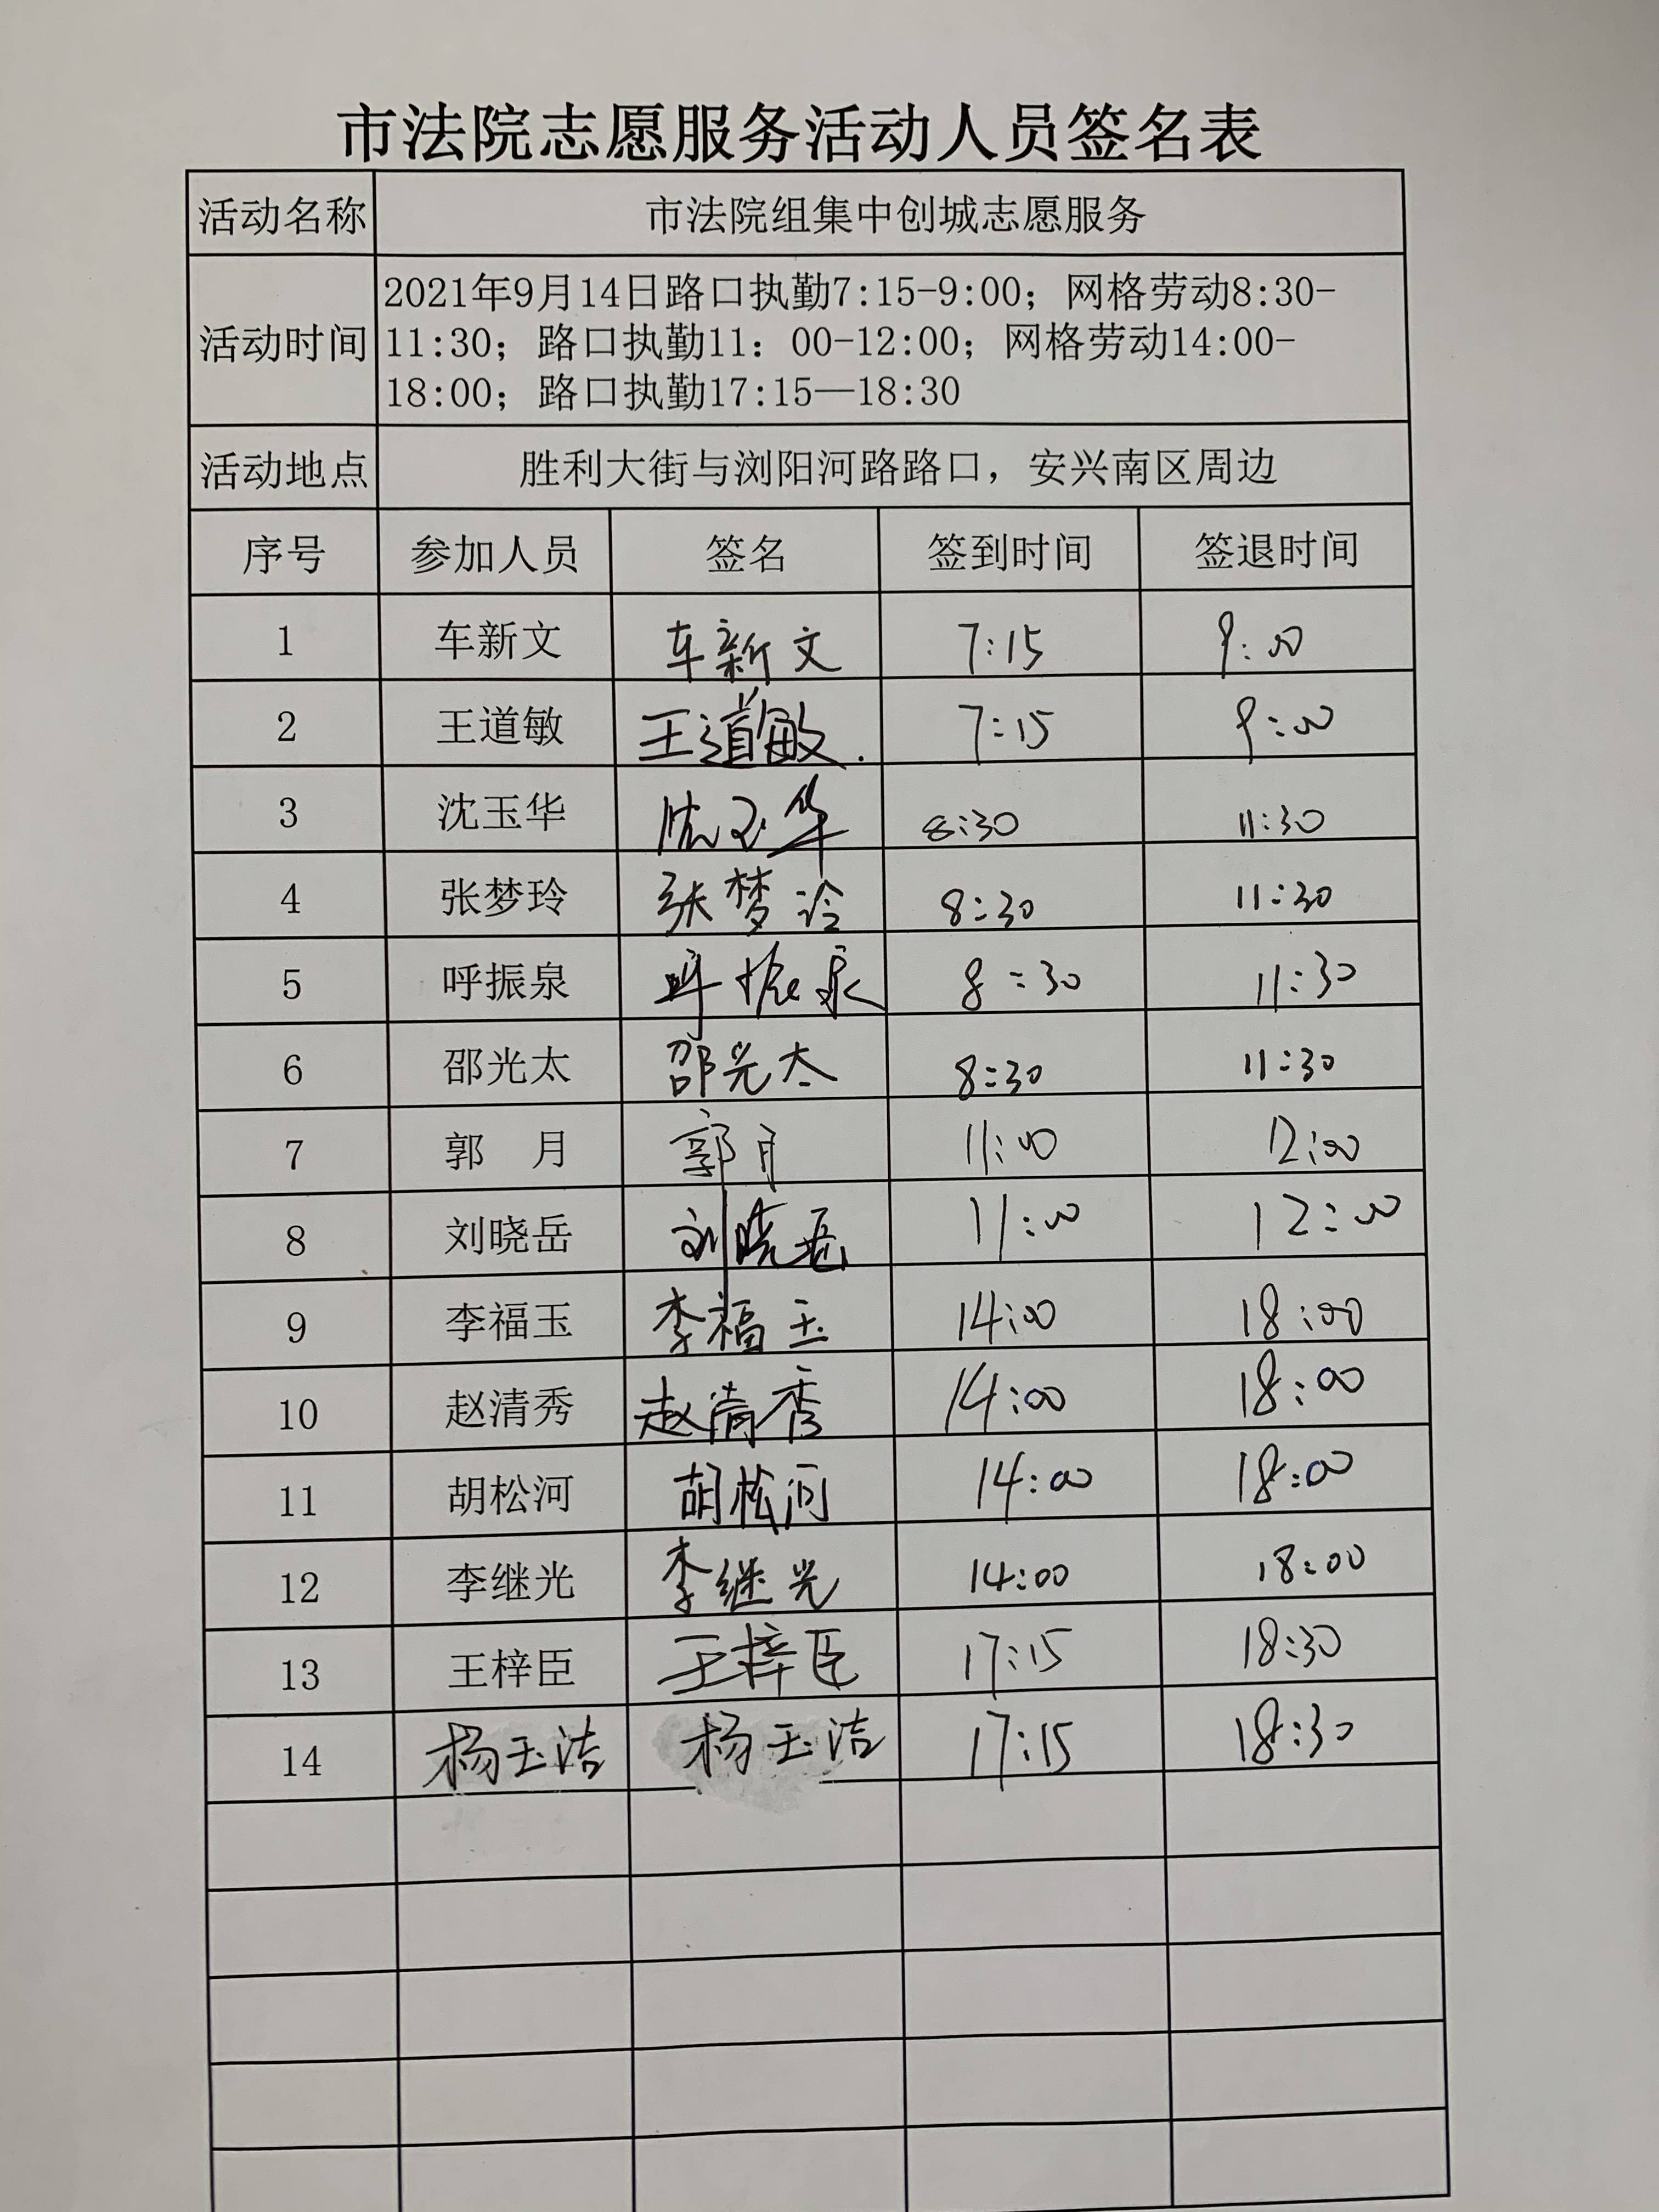 市法院志愿服务活动人员签名表
活动名称 市法院组集中创城志愿服务
活动时间 2021年9月14日路口执勤7:15-9:00；网格劳动8:30-
11:30；路口执勤11：00-12:00；网格劳动14:00-
18:00；路口执勤17:15—18:30
活动地点 胜利大街与浏阳河路路口，安兴南区周边
序号 参加人员 签名 签到时间 签退时间
1 车新文 车新文 7:15 9:00
2 王道敏 王道敏. 7:15 9:00
3 沈玉华 沈玉华 8:30 11:30
4 张梦玲 张梦玲 8:30 11:30
5 呼振泉 呼振泉 8:30 11:30
6 邵光太 邵光太 8:30 11:30
7 郭 月 郭月 11:00 12:00
8 刘晓岳 刘晓岳 11:00 12:00
9 李福玉 李福玉 14:00 18:00
10 赵清秀 赵清秀 14:00 18:00
11 胡松河 胡松河 14:00 18:00
12 李继光 李继光 14:00 18:00
13 王梓臣 王梓臣 17:15 18:30
14 杨玉洁 杨玉洁 17:15 18:30